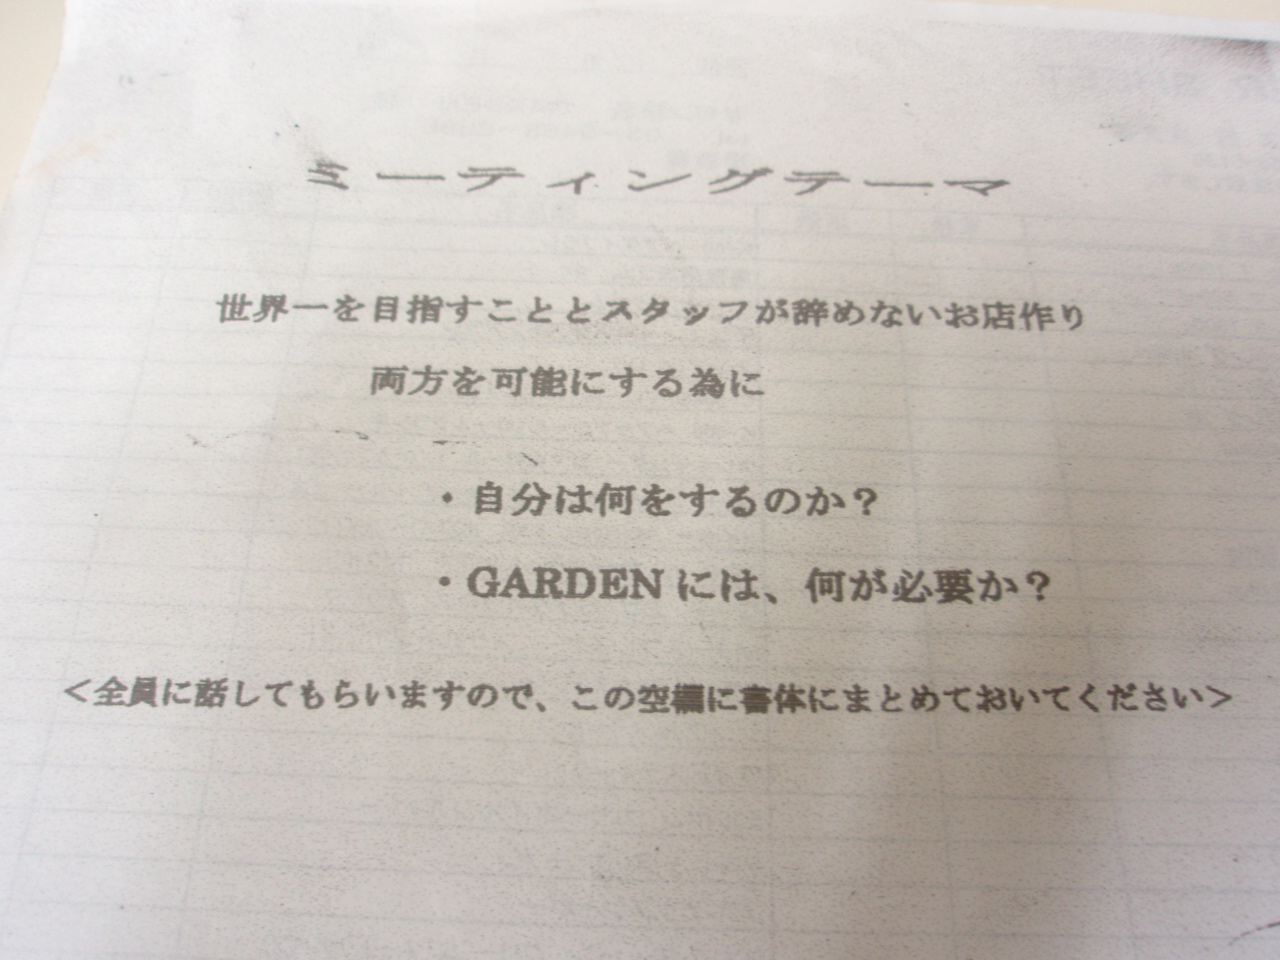 ミーティングテーマ
世界一を目指すこととスタッフが辞めないお店作り
両方を可能にする為に
・自分は何をするのか？
・GARDENには、何が必要か？
＜全員に話してもらいますので、この空欄に書体にまとめておいてください＞